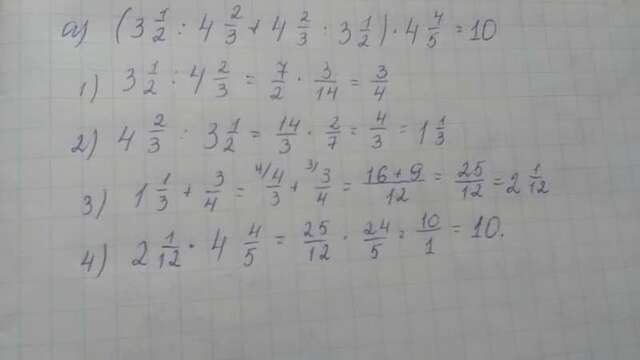 а) (3 1/2 : 4 2/3 + 4 2/3 : 3 1/2) · 4 4/5 = 10
1) 3 1/2 : 4 2/3 = 7/2 · 3/14 = 3/4
2) 4 2/3 : 3 1/2 = 14/3 · 2/7 = 4/3 = 1 1/3
3) 1 1/3 + 3/4 = 4/ 4/3 + 3/ 3/4 = 16+9/12 = 25/12 = 2 1/12
4) 2 1/12 · 4 4/5 = 25/12 · 24/5 = 10/1 = 10.